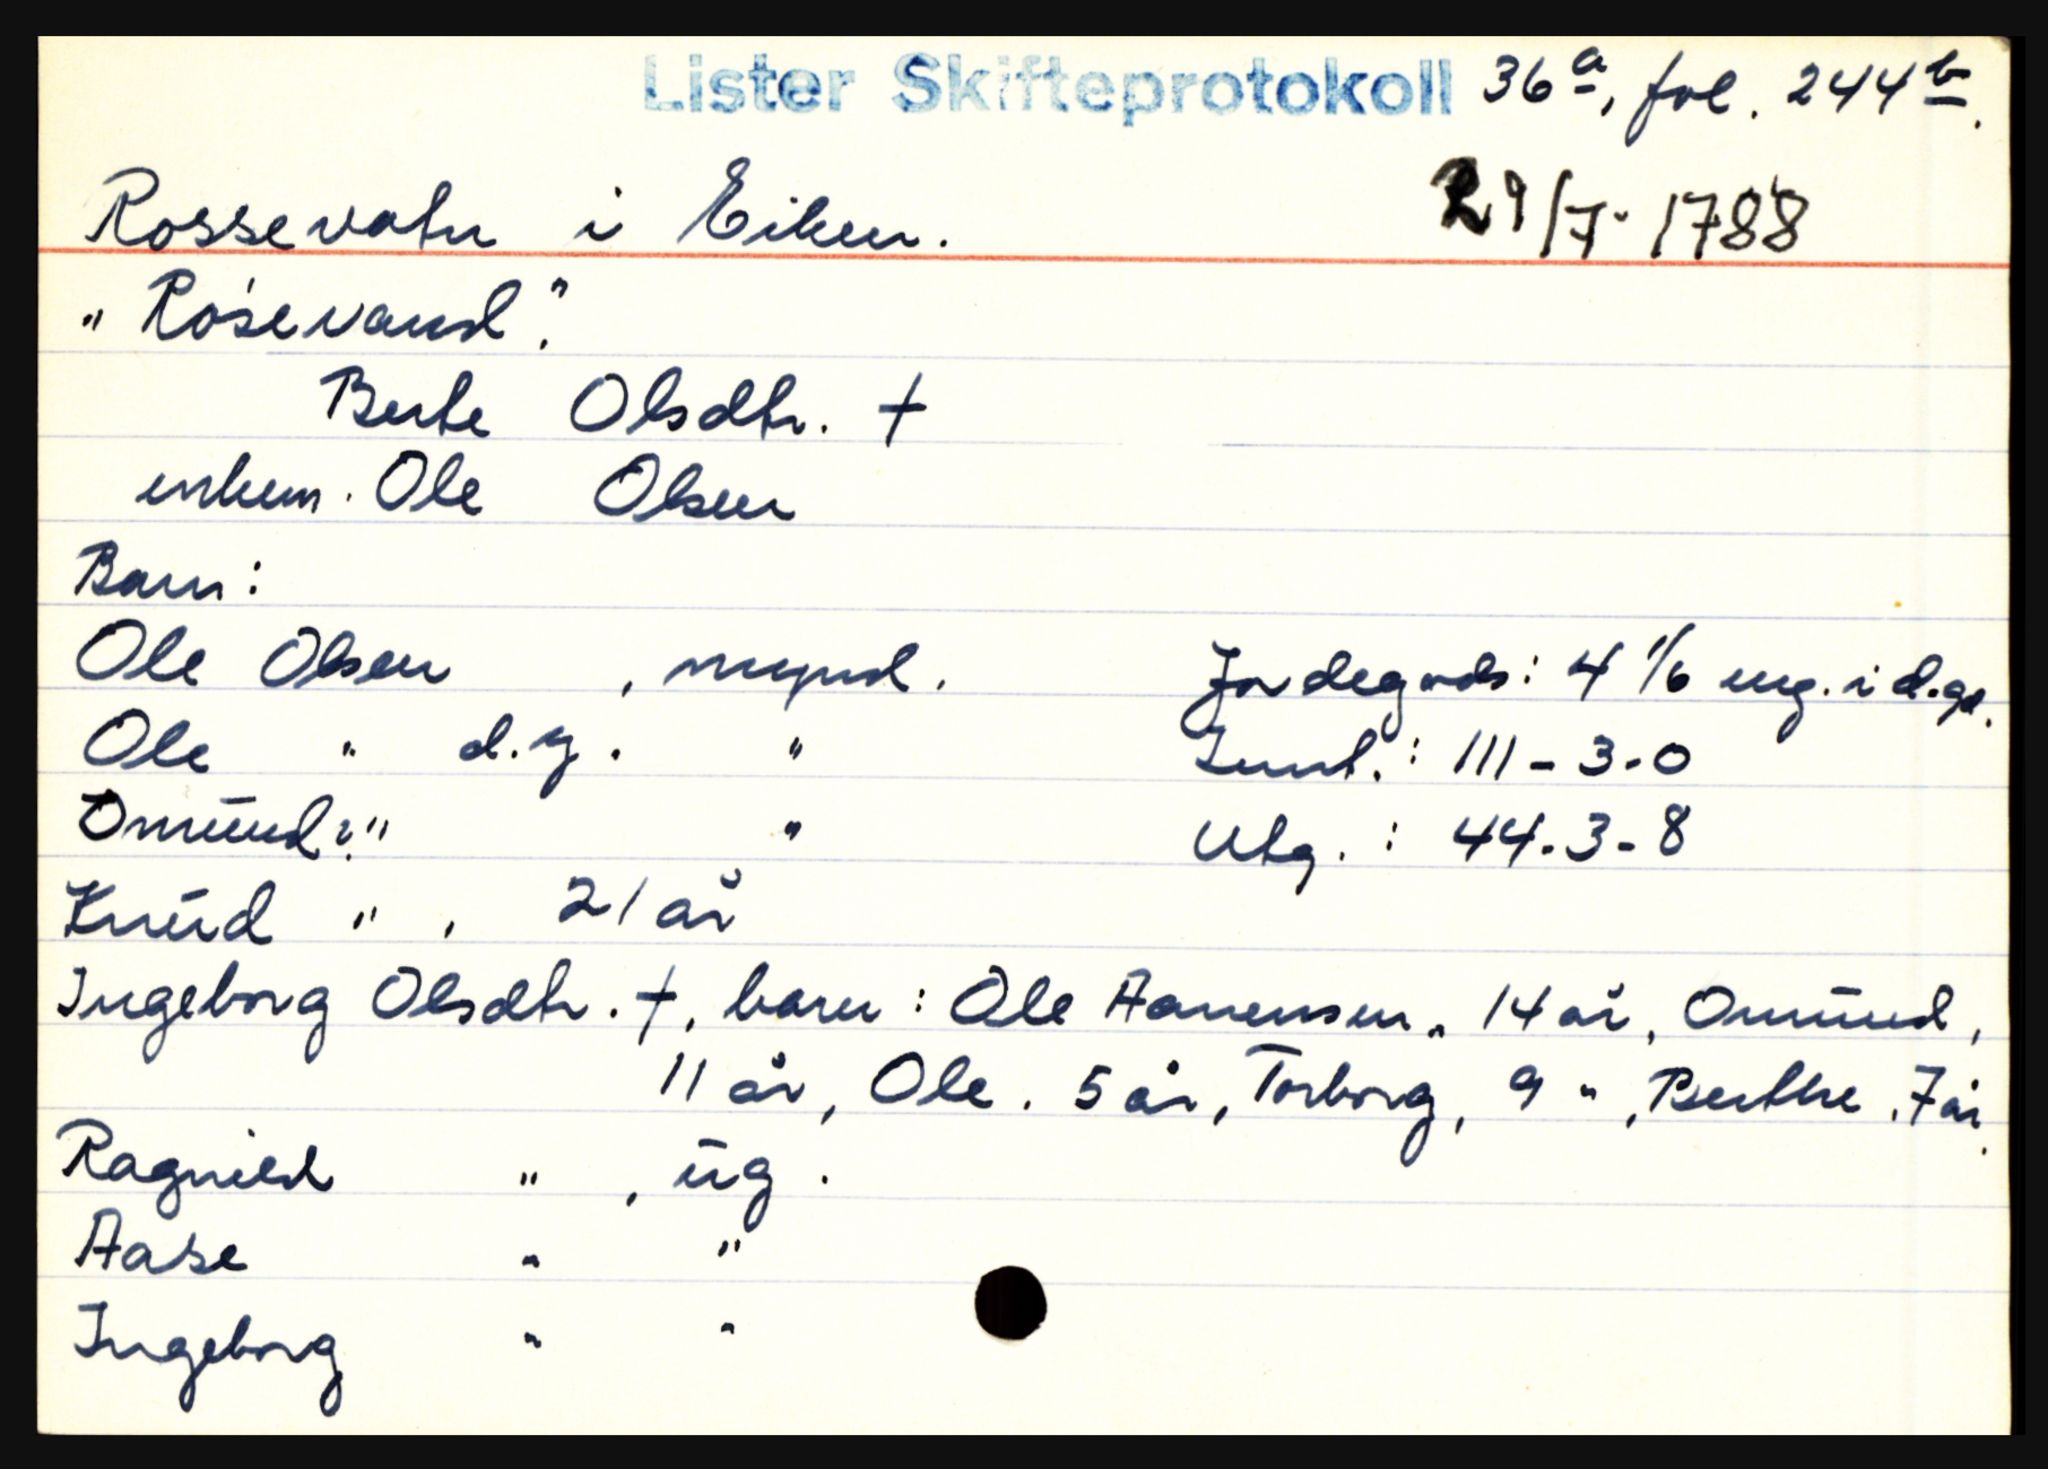 Lister Skifteprotokoll 36a, fol. 244b.
Rossevatn i Eiken. 29/7-1788
"Rosevand".
Berte Olsdtr. +
enkem. Ole Olsen
Barn:
Ole Olsen, mynd. Jordegods: 4 1/6 eng. i d.gd.
Ole " d.y. " Innt.: 111-3-0
Omund " " Utg.: 44-3-8
Knud ", 21 år
Ingeborg Olsdtr. +, barn: Ole Aanensen, 14 år, Omund,
11 år, Ole. 5 år, Torborg, 9 ", Berthe, 7 år.
Ragnild ", ug.
Aase " "
Ingeborg " "